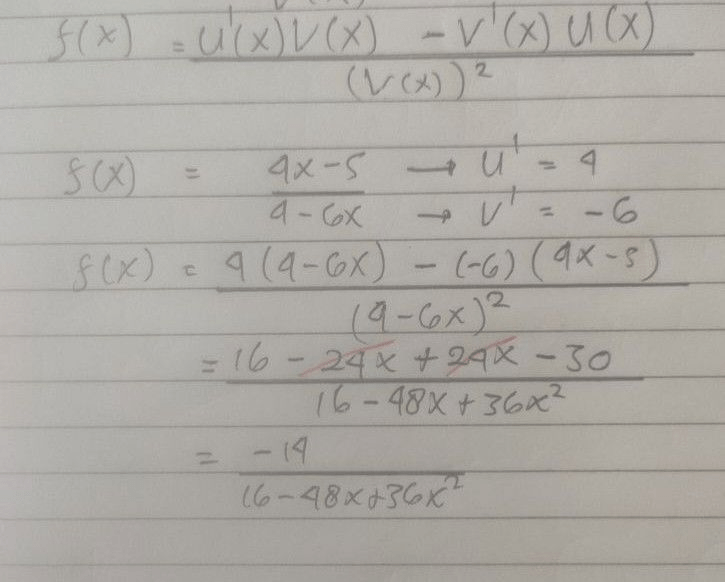 f(x) = U'(x)V(x) - V'(x) U(x)
(V(x))²
f(x) = 4x-5 → U' = 4
4-6x → V' = -6
f(x) = 4(4-6x) - (-6)(4x-5)
(4-6x)²
= 16 - 24x + 24x - 30
16-48x+36x²
= -14
16-48x+36x²